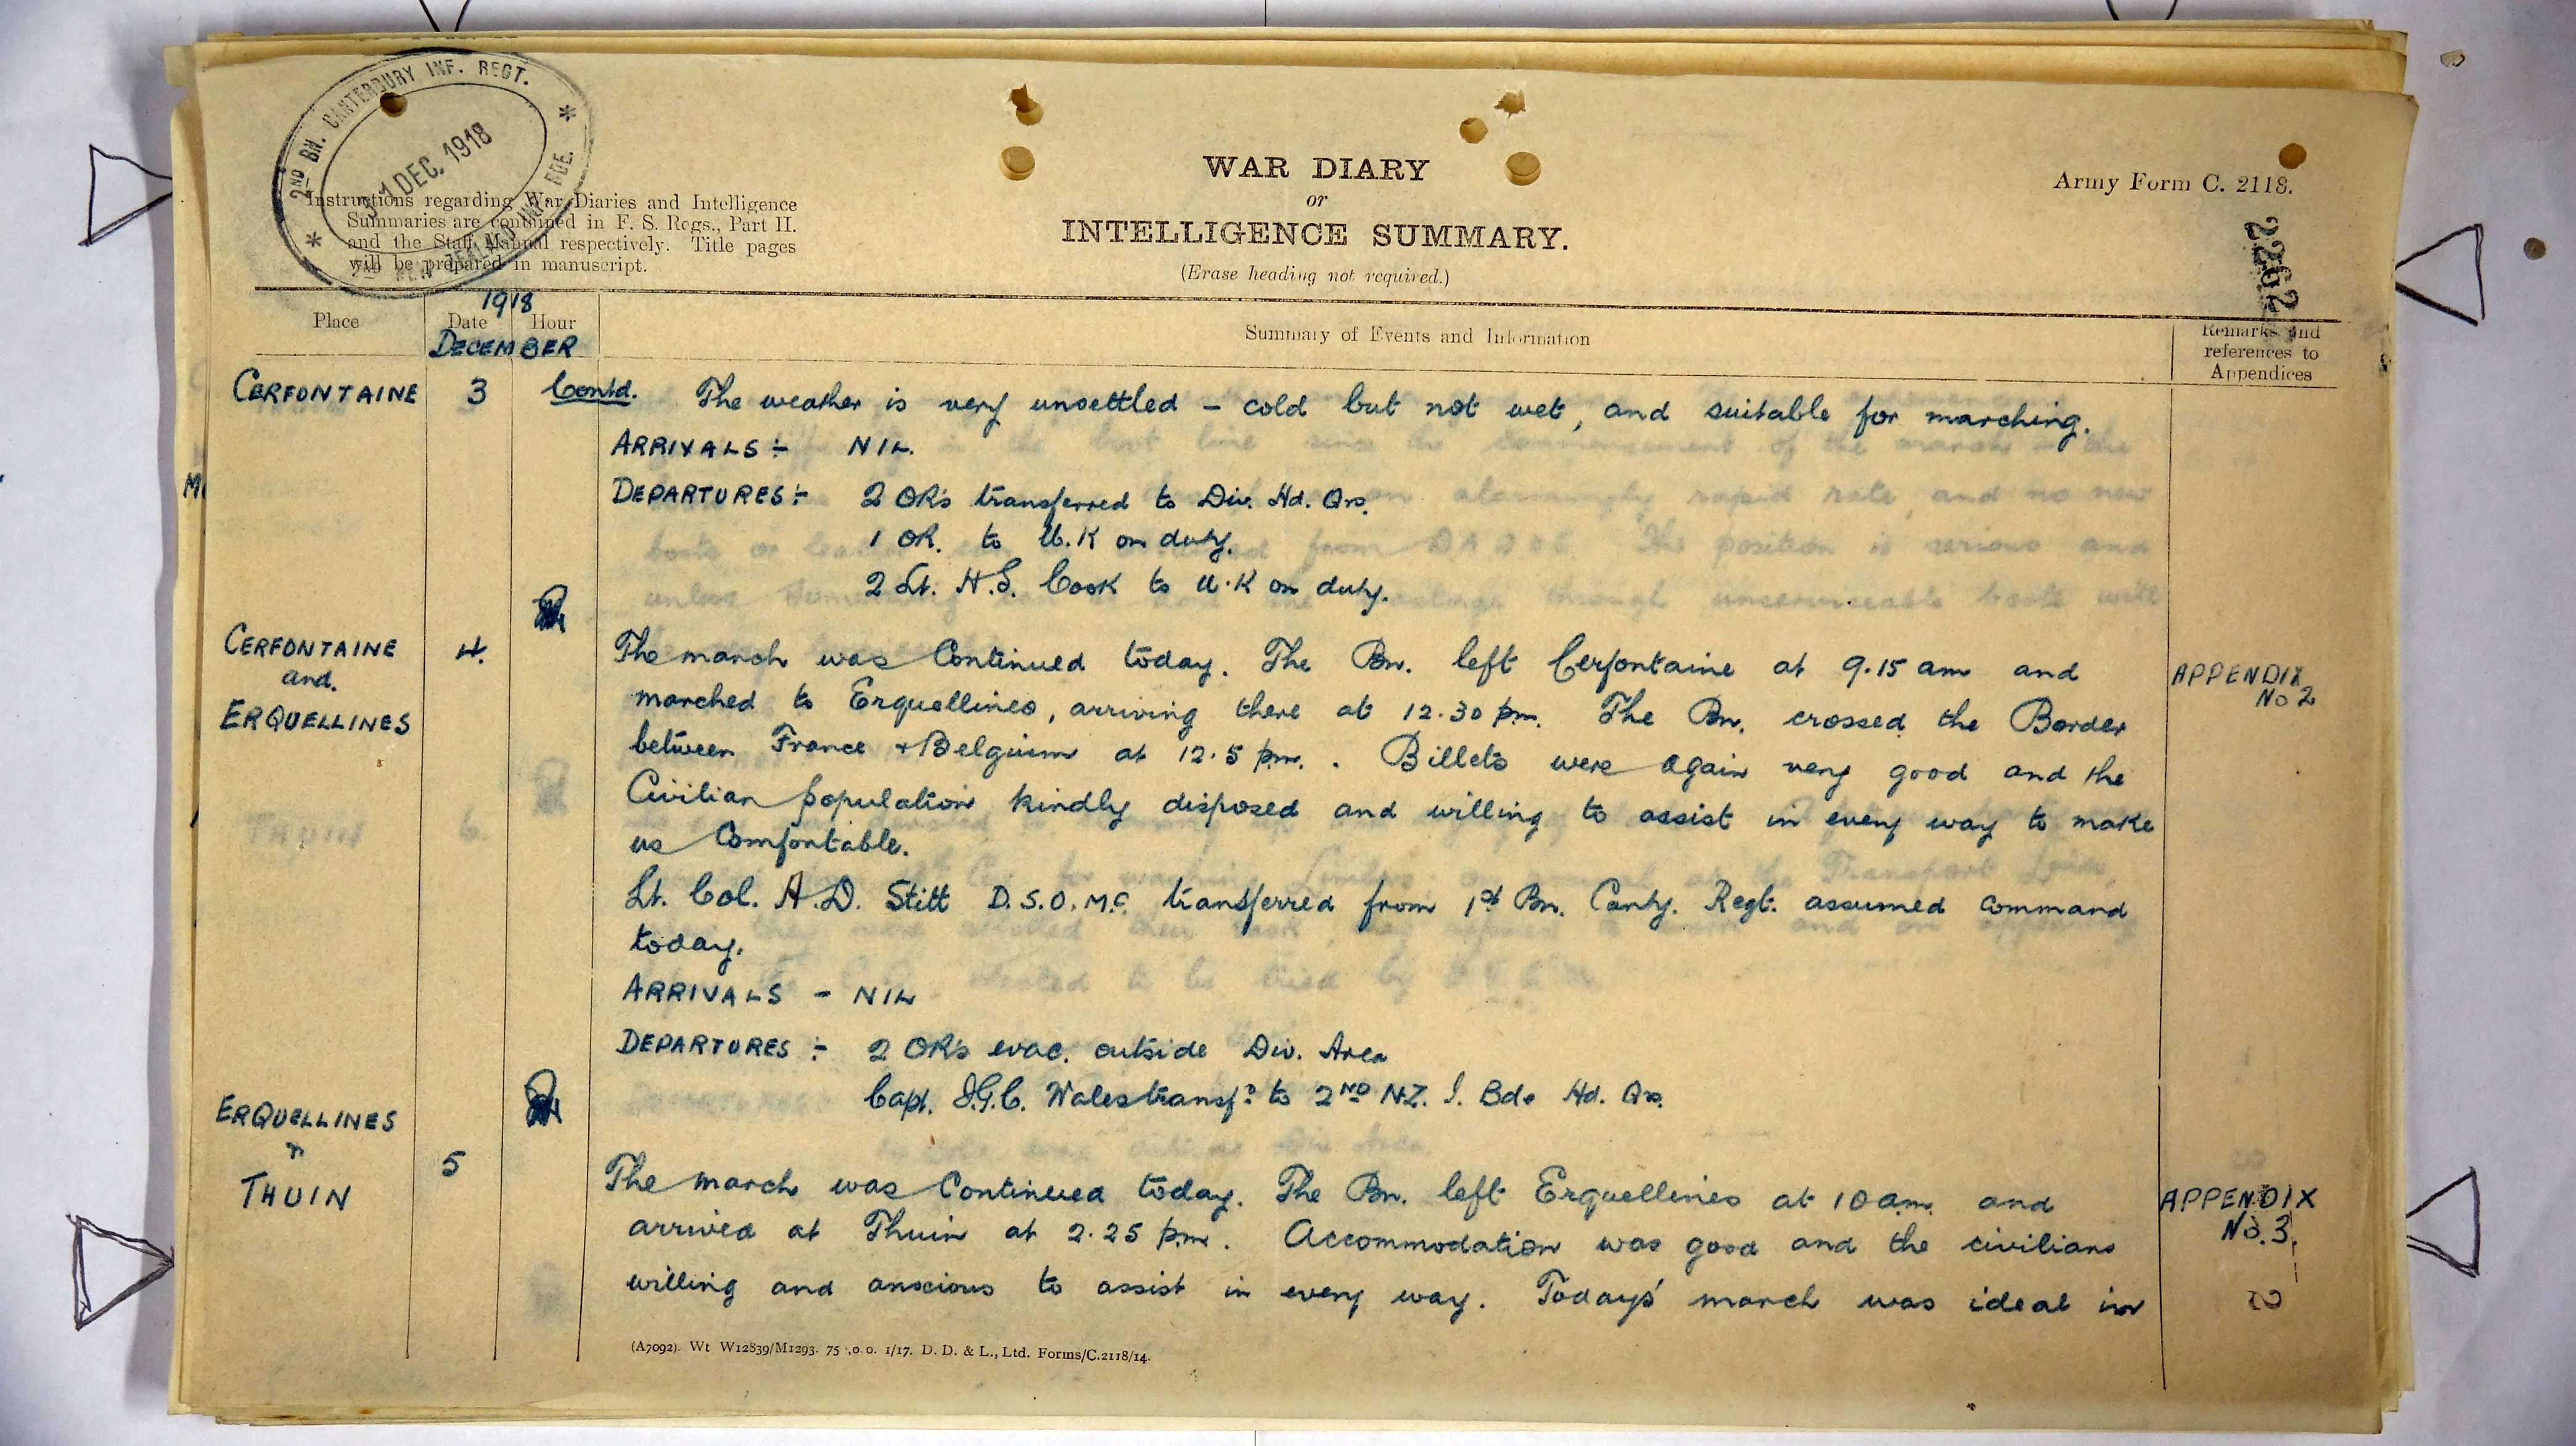 2ND BN. CANTERBURY INF. REGT.
31 DEC. 1918
Instructions regarding War Diaries and Intelligence
Summaries are contained in F. S. Regs., Part II.
and the Staff Manual respectively. Title pages
will be prepared in manuscript.
WAR DIARY
or
INTELLIGENCE SUMMARY.
(Erase heading not required.)
Army Form C. 2118.
2262
1918
Place
Date
Hour
DECEMBER
Summary of Events and Information
Remarks and
references to
Appendices
CERFONTAINE 3 Contd. The weather is very unsettled – cold but not wet, and suitable for marching.
ARRIVALS :- NIL.
DEPARTURES :- 2 OR's transferred to Div. Hd. Qrs.
1 OR. to U.K on duty.
2 Lt. H.S. Cook to U.K on duty.
CERFONTAINE 4. The march was Continued today. The Bn. left Cerfontaine at 9.15 am and APPENDIX
and. No 2
ERQUELLINES marched to Erquellines, arriving there at 12.30 pm. The Bn. crossed the Border
between France + Belguim at 12.5 pm. . Billets were again very good and the
Civilian population kindly disposed and willing to assist in every way to make
us Comfortable.
Lt. Col. A.D. Stitt D.S.O. M.C. transferred from 1st Bn. Canty. Regt. assumed command
today.
ARRIVALS – NIL
DEPARTURES :- 2 OR's evac. outside Div. Area
Capt. J.G.C. Wales transf.d to 2ND N.Z. I. Bde Hd. Qrs.
ERQUELLINES
+
THUIN 5 The march was Continued today. The Bn. left Erquellines at 10 am. and APPENDIX
arrived at Thuin at 2.25 pm. Accommodation was good and the civilians No. 3.
willing and anxious to assist in every way. Todays' march was ideal in
2
(A7092). Wt W12839/M1293. 75 ,0 0. 1/17. D. D. & L., Ltd. Forms/C.2118/14.